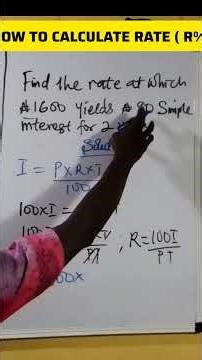 OW TO CALCULATE RATE ( R%
Find the rate at which
₦1600 Yields ₦80 Simple
interest for 2
Solu
I = PXRXT
100
100XI =
R = 100I
PT
00X